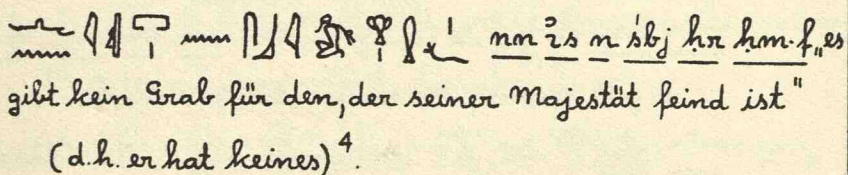 nn ỉs n śbj ḥr ḥm·f „es
gibt kein Grab für den, der seiner Majestät feind ist“
(d.h. er hat keines)⁴.